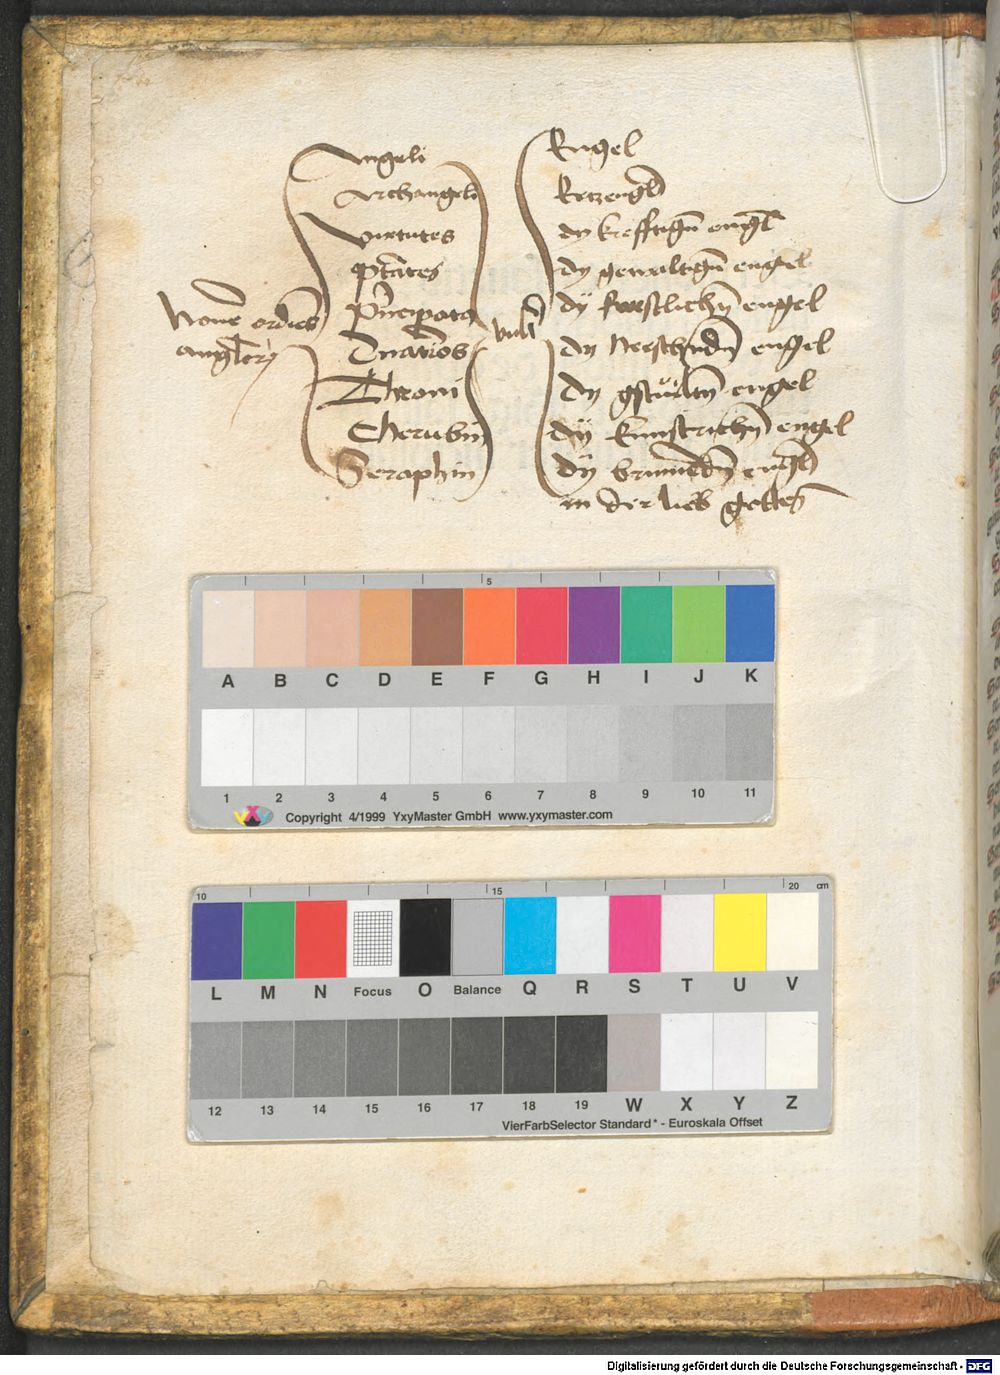 Angeli
Archangeli
Virtutes
Ptātes
Principatꝯ
Dnatiōes
Throni
Cherubin
Seraphin
Novē ordies
anglorꝝ
Engel
Ertzengel
dy krefftigñ engl
dy gewaltigñ engel
dÿ furstlichñ engel
dy herschndñ engel
dy gstultñ engel
dÿ kunstrichñ engel
dÿ brinnedñ engel
in der lieb gottes
5
A B C D E F G H I J K
1 2 3 4 5 6 7 8 9 10 11
yxy Copyright 4/1999 YxyMaster GmbH www.yxymaster.com
10 15 20 cm
L M N Focus O Balance Q R S T U V
12 13 14 15 16 17 18 19 W X Y Z
VierFarbSelector Standard* - Euroskala Offset
Digitalisierung gefördert durch die Deutsche Forschungsgemeinschaft - DFG